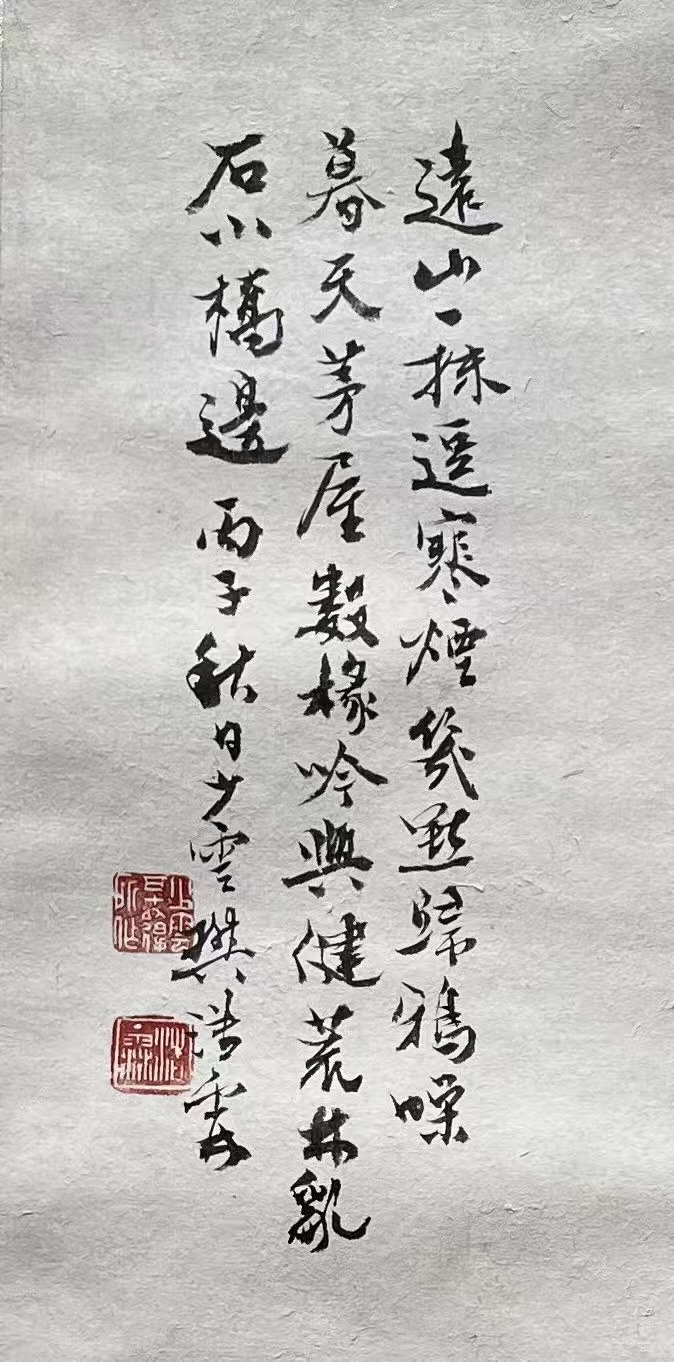 遠山一抹逗寒煙幾點歸鴉噪
暮天茅屋數椽吟興健荒林亂
石小橋邊 丙子秋日少雲樊浩霖
浩霖